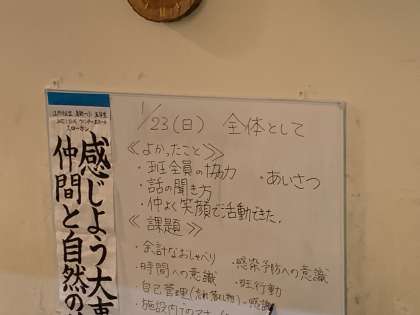 スローガン
感じよう大
仲間と自然の
1/23(日) 全体として
≪よかったこと≫
・班全員の協力
・あいさつ
・話の聞き方
・仲よく笑顔で活動できた。
≪課題≫
・余計なおしゃべり
・感染予防への意識
・時間への意識
・班行動
・自己管理(忘れ落し物)・感謝
・施設内での